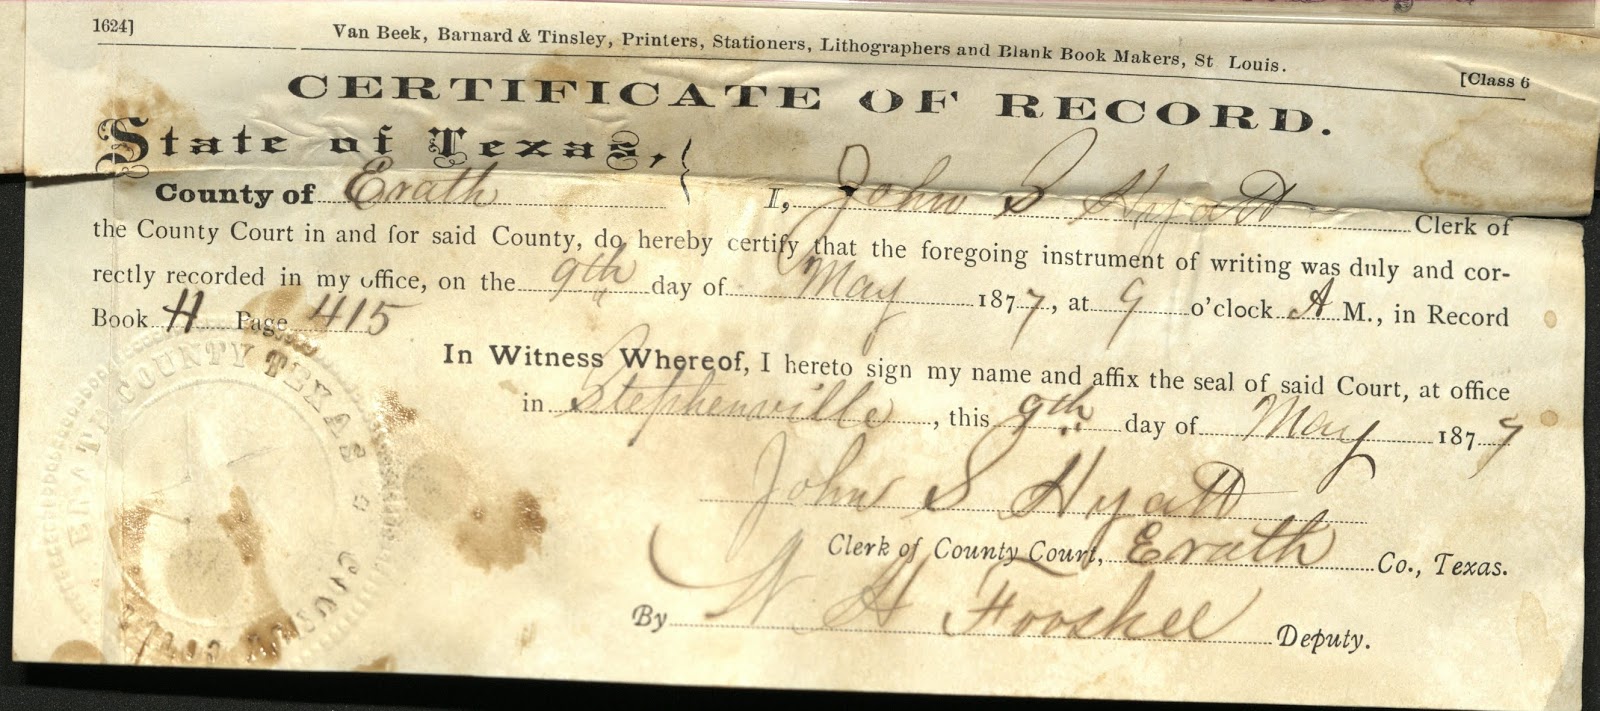 1624]
Van Beek, Barnard & Tinsley, Printers, Stationers, Lithographers and Blank Book Makers, St Louis.
[Class 6
CERTIFICATE OF RECORD.
State of Texas,
County of Erath I, John S Hyatt Clerk of
the County Court in and for said County, do hereby certify that the foregoing instrument of writing was duly and cor-
rectly recorded in my office, on the 9th day of May 1877, at 9 o'clock A M., in Record
Book H Page 415
In Witness Whereof, I hereto sign my name and affix the seal of said Court, at office
in Stephenville, this 9th day of May 1877
John S Hyatt
Clerk of County Court, Erath Co., Texas.
By H Fooshee Deputy.
ERATH COUNTY TEXAS
COUNTY COURT